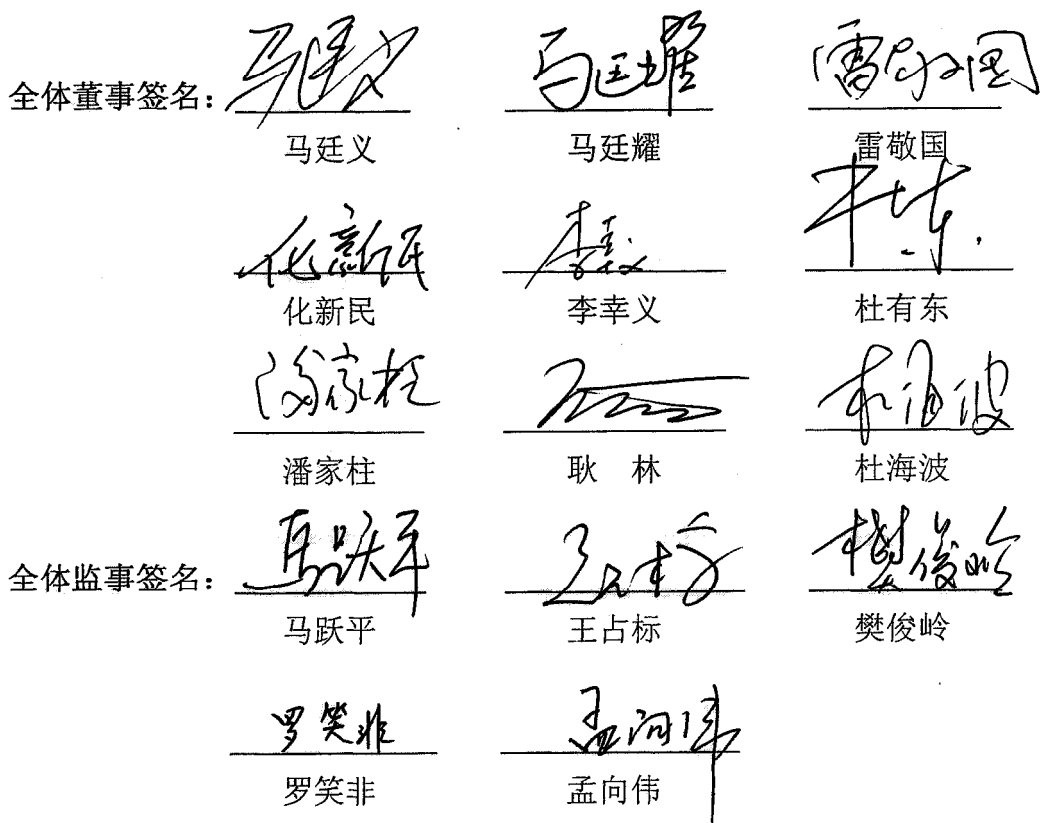 全体董事签名：
马廷义 马廷耀 雷敬国
化新民 李幸义 杜有东
潘家柱 耿 林 杜海波
全体监事签名：
马跃平 王占标 樊俊岭
罗笑非 孟向伟